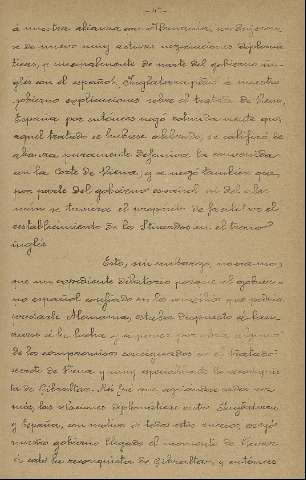 - 4 -
á nuestra alianza con Alemania, 
se de nuevo muy activas negociaciones diplomá
ticas, y especialmente de parte del gobierno in
glés con el español. Inglaterra pidió á nuestro
gobierno explicaciones sobre el tratado de Viena,
España por entonces negó rotundamente que
aquel tratado se hubiese celebrado, se calificó de
alianza puramente defensiva la convenida
en la Corte de Viena, y se negó también que
por parte del gobierno español ni del ale
mán se tuviera el propósito de facilitar el
establecimiento de los Stuardos en el trono
inglés
Esto, sin embargo, no era mas
que un expediente dilatorio porque el gobier
no español confiado en los auxilios que podria
prestarle Alemania, estaba dispuesto á lan
zarse á la lucha y á poner por obra algunos
de los compromisos consignados en el tratado
secreto de Viena y muy especialmente la reconquis
ta de Gibraltar. Así fué que 
más las relaciones diplomáticas entre Inglaterra
y España, con motivo de todos estos sucesos creyó
nuestro gobierno llegado el momento de llevar
á cabo la reconquista de Gibraltar, y entonces